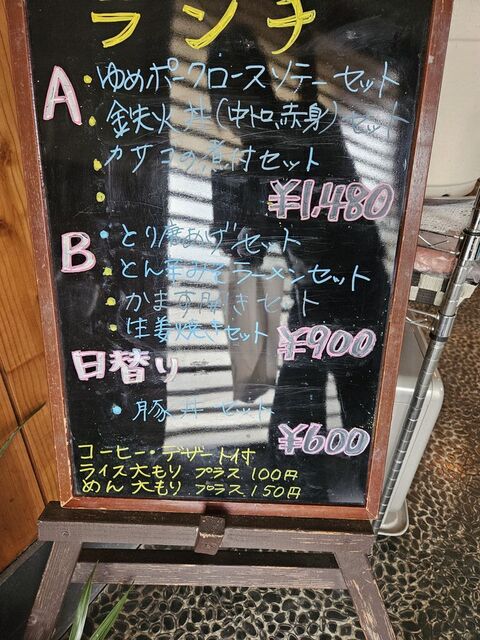 ランチ
A
・ゆめポークロースソテーセット
・鉄火丼(中トロ、赤身)セット
・カサゴの煮付セット
¥1,480
B
・とり唐あげセット
・とん辛みそラーメンセット
・かます開きセット
・生姜焼きセット
¥900
日替り
・豚丼セット
¥600
コーヒー・デザート付
ライス大もり プラス100円
めん大もり プラス150円